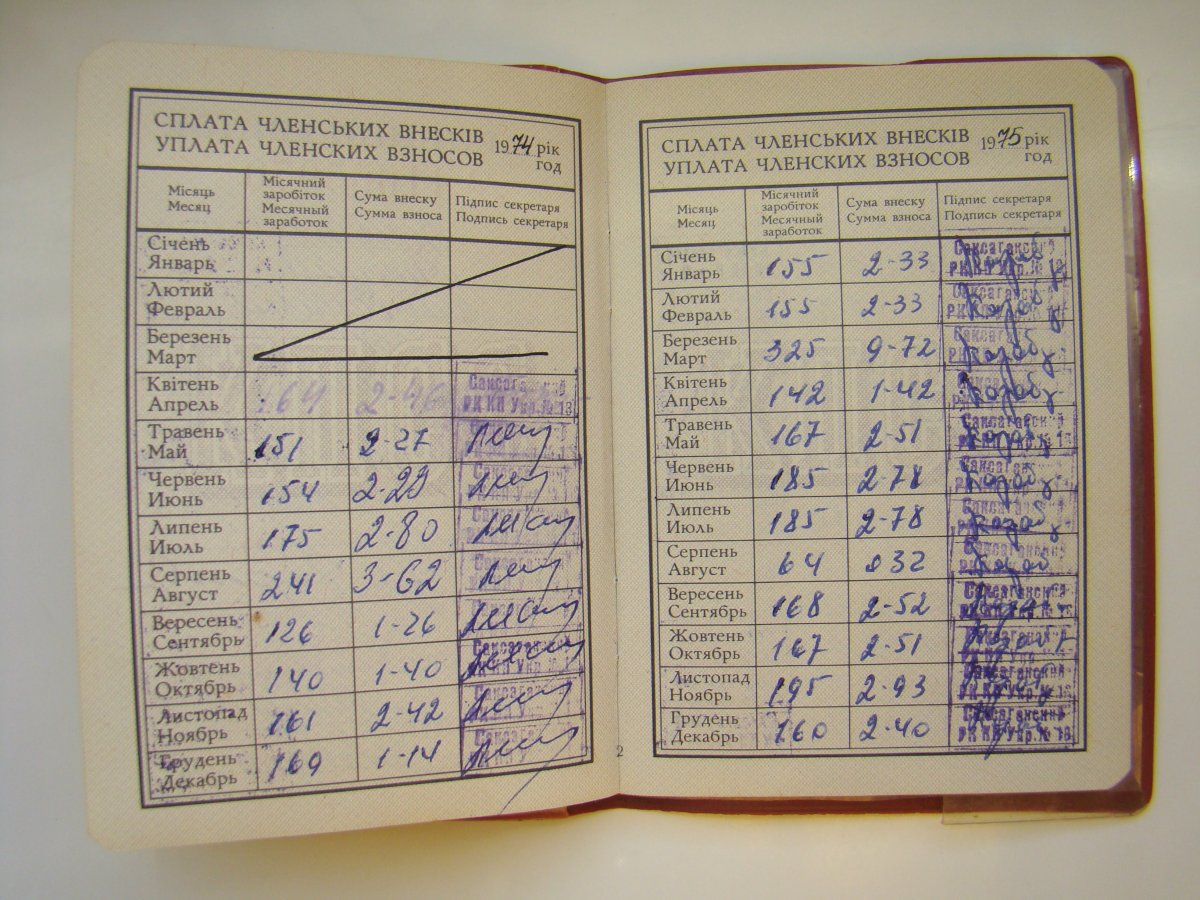 СПЛАТА ЧЛЕНСЬКИХ ВНЕСКІВ
УПЛАТА ЧЛЕНСКИХ ВЗНОСОВ
1974 рік
год
Місяць
Месяц
Місячний
заробіток
Месячный
заработок
Сума внеску
Сумма взноса
Підпис секретаря
Подпись секретаря
Січень
Январь
Лютий
Февраль
Березень
Март
Квітень
Апрель
164 2-46
Саксаганский
РК КП Укр. № 13
Травень
Май
151 2-27
Червень
Июнь
154 2-29
Липень
Июль
175 2-80
Серпень
Август
241 3-62
Вересень
Сентябрь
126 1-26
Жовтень
Октябрь
140 1-40
Листопад
Ноябрь
161 2-42
Грудень
Декабрь
1-14
2
СПЛАТА ЧЛЕНСЬКИХ ВНЕСКІВ
УПЛАТА ЧЛЕНСКИХ ВЗНОСОВ
1975 рік
год
Місяць
Месяц
Місячний
заробіток
Месячный
заработок
Сума внеску
Сумма взноса
Підпис секретаря
Подпись секретаря
Січень
Январь
155 2-33
Саксаганский
Лютий
Февраль
155 2-33
Березень
Март
325 9-72
Квітень
Апрель
142 1-42
Травень
Май
167 2-51
Червень
Июнь
185 2-78
Липень
Июль
185 2-78
Серпень
Август
64 032
Вересень
Сентябрь
168 2-52
Саксаганский
Жовтень
Октябрь
167 2-51
Саксаганский
Листопад
Ноябрь
195 2-93
Саксаганский
Грудень
Декабрь
160 2-40
Саксаганский